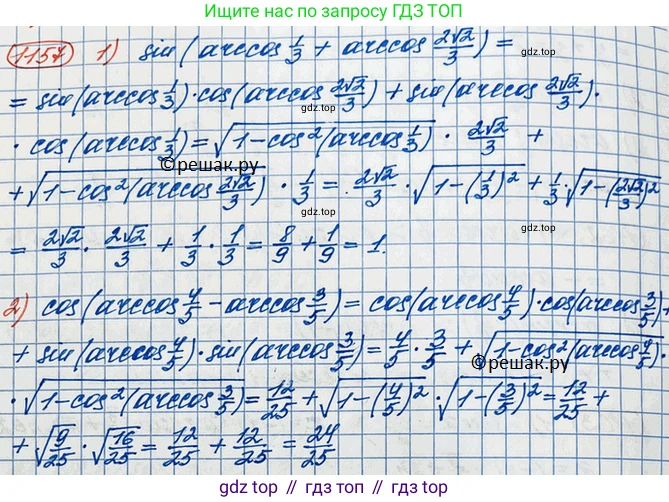 Ищите нас в Яндексе по запросу ГДЗ ТОП
1157 1) sin(arccos 1/3 + arccos 2√2/3) =
гдз top
= sin(arccos 1/3)·cos(arccos 2√2/3) + sin(arccos 2√2/3)·
гдз top
· cos(arccos 1/3) = √(1-cos²(arccos 1/3)) · 2√2/3 +
©reшак.ру
+ √(1-cos²(arccos 2√2/3)) · 1/3 = 2√2/3 · √(1-(1/3)²) + 1/3·√(1-(2√2/3)²)
= 2√2/3 · 2√2/3 + 1/3 · 1/3 = 8/9 + 1/9 = 1.
2) cos(arccos 4/5 - arccos 3/5) = cos(arccos 4/5)·cos(arccos 3/5)+
+ sin(arccos 4/5)·sin(arccos 3/5) = 4/5 · 3/5 + √(1-cos²(arccos 4/5))·
©reшак.ру
· √(1-cos²(arccos 3/5)) = 12/25 + √(1-(4/5)²) · √(1-(3/5)²) = 12/25 +
гдз top
+ √(9/25) · √(16/25) = 12/25 + 12/25 = 24/25
gdz.top // gdz.top // gdz.top